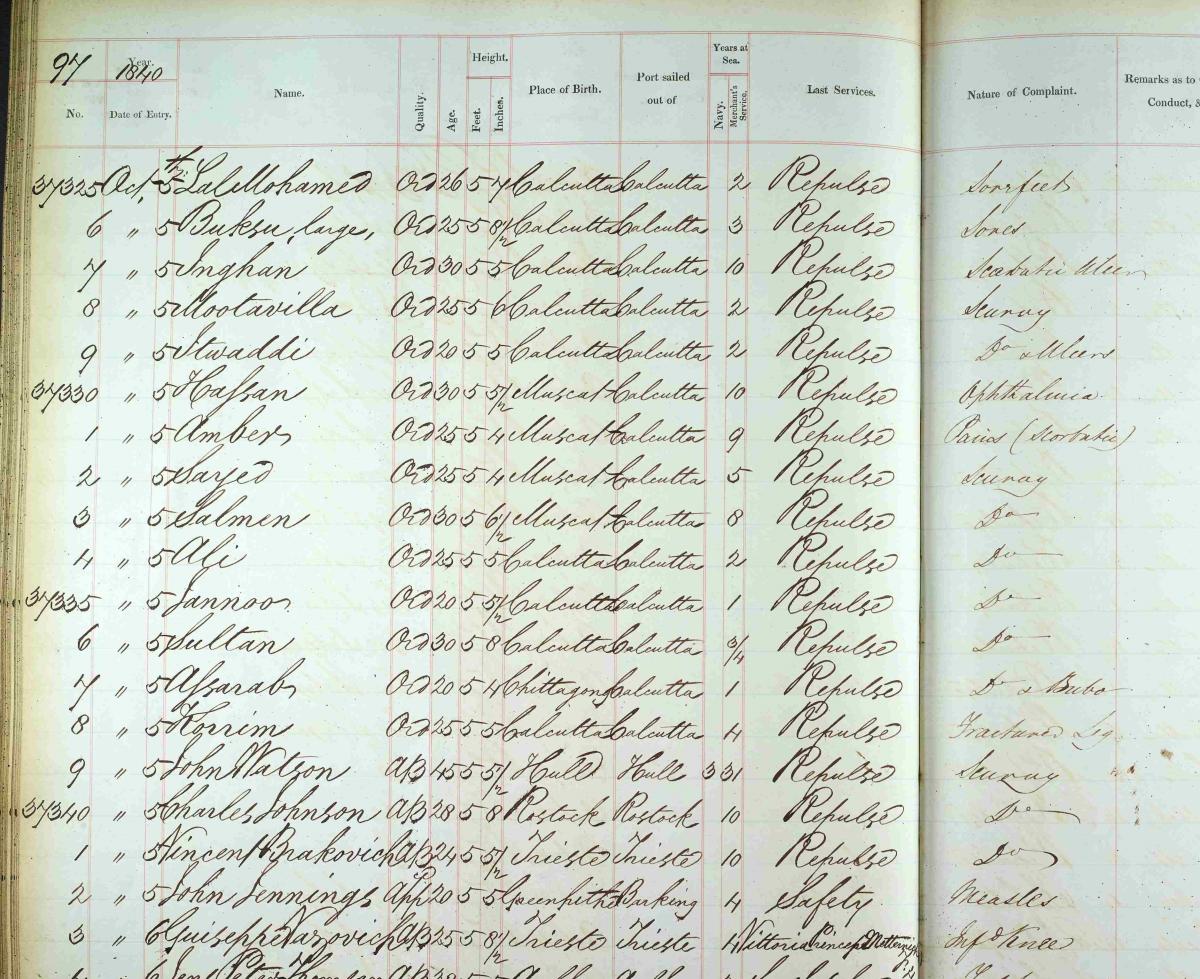 97 Year. 1840
No. Date of Entry. Name. Quality. Age. Height. Feet. Inches. Place of Birth. Port sailed out of Years at Sea. Navy. Merchant's Service. Last Services. Nature of Complaint. Remarks as to Conduct, &
37325 Oct. 5 Lal Mohamed Ord 26 5 7 Calcutta Calcutta 2 Repulse Sorefeet
6 " 5 Buksu, large, Ord 25 5 8 1/2 Calcutta Calcutta 3 Repulse Sores
7 " 5 Inghan Ord 30 5 5 Calcutta Calcutta 10 Repulse Scorbutic Ulcer
8 " 5 Mootavilla Ord 25 5 6 Calcutta Calcutta 2 Repulse Scurvy
9 " 5 Itwaddi Ord 20 5 5 Calcutta Calcutta 2 Repulse Do & Ulcers
37330 " 5 Hassan Ord 30 5 5 1/2 Muscat Calcutta 10 Repulse Ophthalmia
1 " 5 Amber Ord 25 5 4 Muscat Calcutta 9 Repulse Pains (Scorbutic)
2 " 5 Sayed Ord 25 5 4 Muscat Calcutta 5 Repulse Scurvy
3 " 5 Salmen Ord 30 5 6 1/2 Muscat Calcutta 8 Repulse Do
4 " 5 Ali Ord 25 5 5 Calcutta Calcutta 2 Repulse Do
37335 " 5 Jannoo Ord 20 5 5 1/2 Calcutta Calcutta 1 Repulse Do
6 " 5 Sultan Ord 30 5 8 Calcutta Calcutta 3/4 Repulse Do
7 " 5 Assarab Ord 20 5 4 Chittagong Calcutta 1 Repulse Do & Bubo
8 " 5 Korrim Ord 25 5 5 Calcutta Calcutta 4 Repulse Fractured Leg
9 " 5 John Watson AB 45 5 5 1/2 Hull Hull 3 31 Repulse Scurvy
37340 " 5 Charles Johnson AB 28 5 8 Rostock Rostock 10 Repulse Do
1 " 5 Vincent Brakovich AB 24 5 5 1/2 Trieste Trieste 10 Repulse Do
2 " 5 John Jennings App 20 5 5 Greenhithe Barking 4 Safety Measles
3 " 6 Guiseppe AB 25 5 8 1/2 Trieste Trieste 4 Vittoria Infd Knee